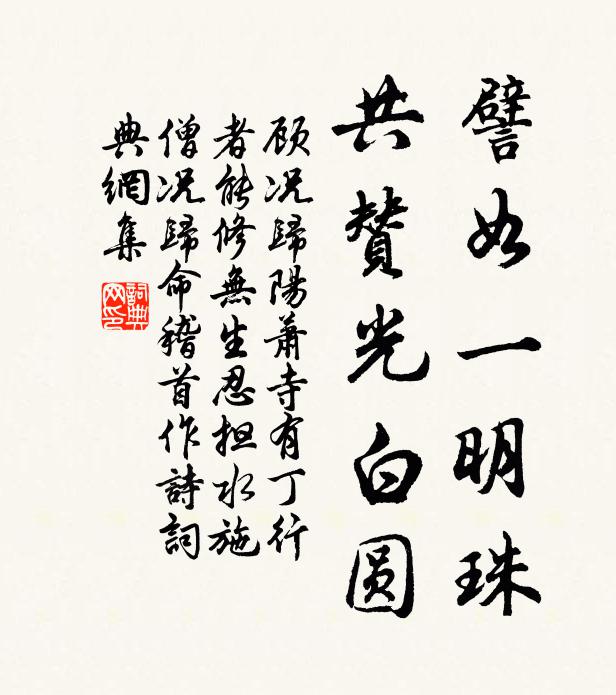 譬如一明珠
共赞光白圆
顾况歸陽蕭寺有丁行
者能修無生忍担水施
僧况歸命稽首作詩詞
典網集
詞典网印